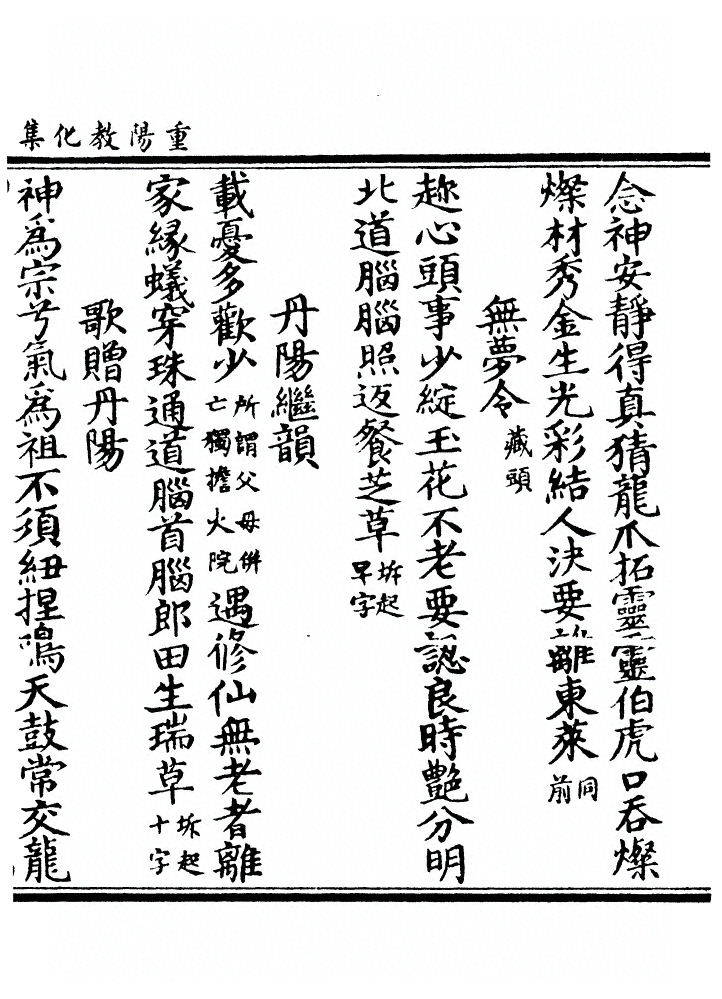 重陽教化集
念神安靜得真猜龍爪拓靈靈伯虎口吞燦
燦材秀金生光彩結人決要離東萊同前
無夢令藏頭
趂心頭事少綻玉花不老要認良時艷分明
北道腦腦照返餐芝草坼起早字
丹陽繼韻
載憂多歡少所謂父母併亡獨擔火院遇修仙無老者離
家緣蟻穿珠通道腦首腦郎田生瑞草坼起十字
歌贈丹陽
神爲宗兮氣爲祖不須紐捏鳴天鼓常交龍